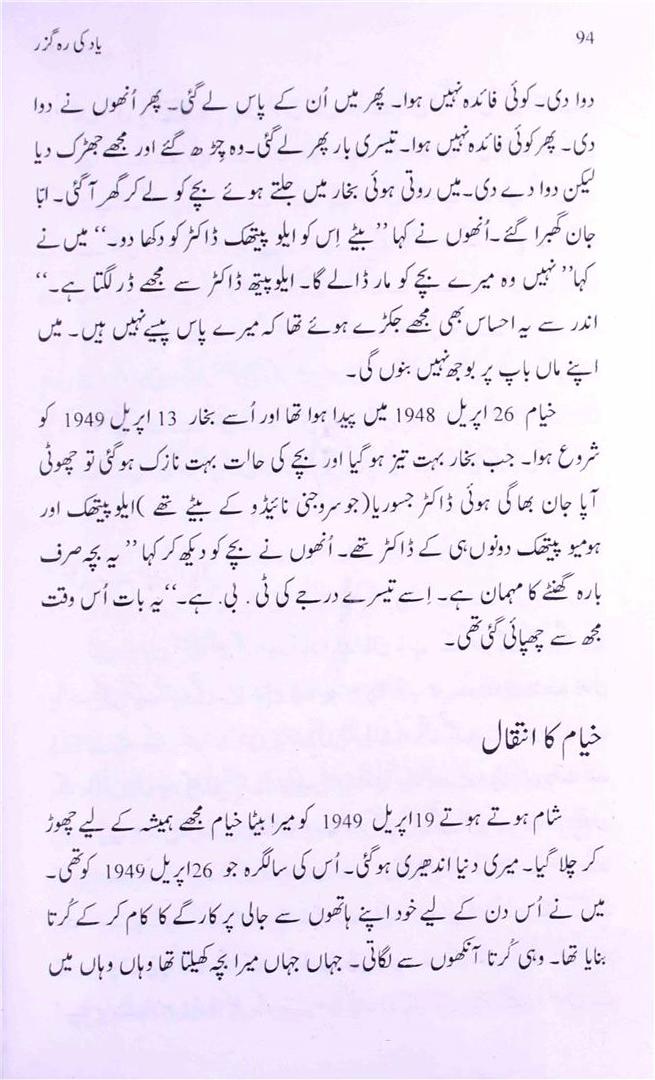 94
یاد کی رہ گزر
دوا دی۔ کوئی فائدہ نہیں ہوا۔ پھر میں اُن کے پاس لے گئی۔ پھر اُنھوں نے دوا
دی۔ پھر کوئی فائدہ نہیں ہوا۔ تیسری بار پھر لے گئی۔وہ چڑھ گئے اور مجھے جھڑک دیا
لیکن دوا دے دی۔میں روتی ہوئی بخار میں جلتے ہوئے بچے کو لے کر گھر آ گئی۔ ابّا
جان گھبرا گئے۔اُنھوں نے کہا ’’بیٹے اِس کو ایلوپیتھک ڈاکٹر کو دکھا دو۔‘‘ میں نے
کہا’’ نہیں وہ میرے بچے کو مار ڈالے گا۔ ایلوپیتھ ڈاکٹر سے مجھے ڈر لگتا ہے۔‘‘
اندر سے یہ احساس بھی مجھے جکڑے ہوئے تھا کہ میرے پاس پیسے نہیں ہیں۔ میں
اپنے ماں باپ پر بوجھ نہیں بنوں گی۔
خیام 26 اپریل 1948 میں پیدا ہوا تھا اور اُسے بخار 13 اپریل 1949 کو
شروع ہوا۔ جب بخار بہت تیز ہو گیا اور بچے کی حالت بہت نازک ہوگئی تو چھوٹی
آپا جان بھاگی ہوئی ڈاکٹر جسوریا(جو سروجنی نائیڈو کے بیٹے تھے )ایلوپیتھک اور
ہومیوپیتھک دونوں ہی کے ڈاکٹر تھے۔ اُنھوں نے بچے کو دیکھ کر کہا ’’ یہ بچہ صرف
بارہ گھنٹے کا مہمان ہے۔ اِسے تیسرے درجے کی ٹی . بی. ہے۔‘‘یہ بات اُس وقت
مجھ سے چھپائی گئی تھی۔
خیام کا انتقال
شام ہوتے ہوتے 19اپریل 1949 کو میرا بیٹا خیام مجھے ہمیشہ کے لیے چھوڑ
کر چلا گیا۔ میری دنیا اندھیری ہوگئی۔ اُس کی سالگرہ جو 26اپریل 1949 کو تھی۔
میں نے اُس دن کے لیے خود اپنے ہاتھوں سے جالی پر کارگے کا کام کر کے کُرتا
بنایا تھا۔ وہی کُرتا آنکھوں سے لگاتی۔ جہاں جہاں میرا بچہ کھیلتا تھا وہاں وہاں میں